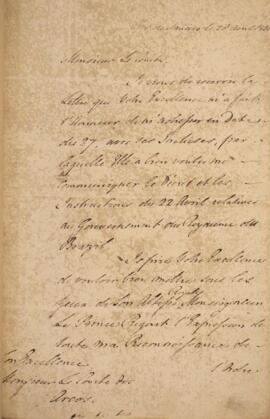 Rio de Janeiro le 28 Avril 1821
Monsieur Le Comte,
Je viens de recevoir la
Lettre que Votre Excellence m'a fait
l'honneur de m'adresser en Date
du 27, avec ses Incluses, par
laquelle Elle a bien voulu me
Communiquer le Décret et les
Instructions du 22 Avril relatives
au Gouvernement du Royaume du
Brezil
Je prie Votre Excellence
de vouloir bien mettre sous les
Yeux de Son Altesse Royale Monseigneur
Le Prince Regent l'Expression de
toute ma Reconnaissance de
l'Ordre
Son Excellence
Monsieur Le Comte dos
Arcos.